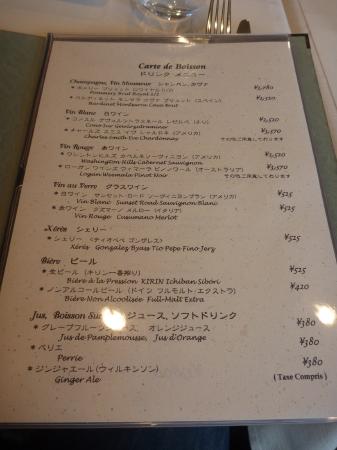 Carte de Boisson
ドリンク メニュー
Champagne, Vin Mousseux シャンペン、カヴァ
Pommery Brut Royal 1/2
Bordinat Montsarra Cava Brut
Vin Blanc 白ワイン
Cono Sur Gewürztraminer
Charles Smith Eve Chardonnay
その他ご用意しております
Vin Rouge 赤ワイン
＊ワシントンヒルズ カベルネソーヴィニヨン (アメリカ)
Washington Hills Cabernet Sauvignon
Logan Weemala Pinot Noir
その他ご用意しております
Vin au Verre グラスワイン
＊白ワイン サンセット ロード ソーヴィニヨンブラン (アメリカ) ¥525
Vin Blanc Sunset Road Sauvignon Blanc
＊赤ワイン クズマーノ メルロー (イタリア) ¥525
Vin Rouge Cusumano Merlot
Xérès シェリー
＊シェリー (ティオペペ ゴンザレス) ¥525
Xérès Gongalez Byass Tio Pepe Fino Jerz
Bière ビール
＊生ビール (キリン一番搾り) ¥525
Bière à la Pression KIRIN Ichiban Sibori
＊ノンアルコールビール (ドイツ フルモルト・エクストラ) ¥420
Bière Non Alcoolisée Full-Malt Extra
Jus, Boisson ジュース、ソフトドリンク
＊グレープフルーツジュース オレンジジュース ¥380
Jus de Pamplemousse, Jus d'Orange
＊ペリエ ¥380
Perrie
＊ジンジャエール(ウィルキンソン) ¥380
Ginger Ale
( Taxe Compris )